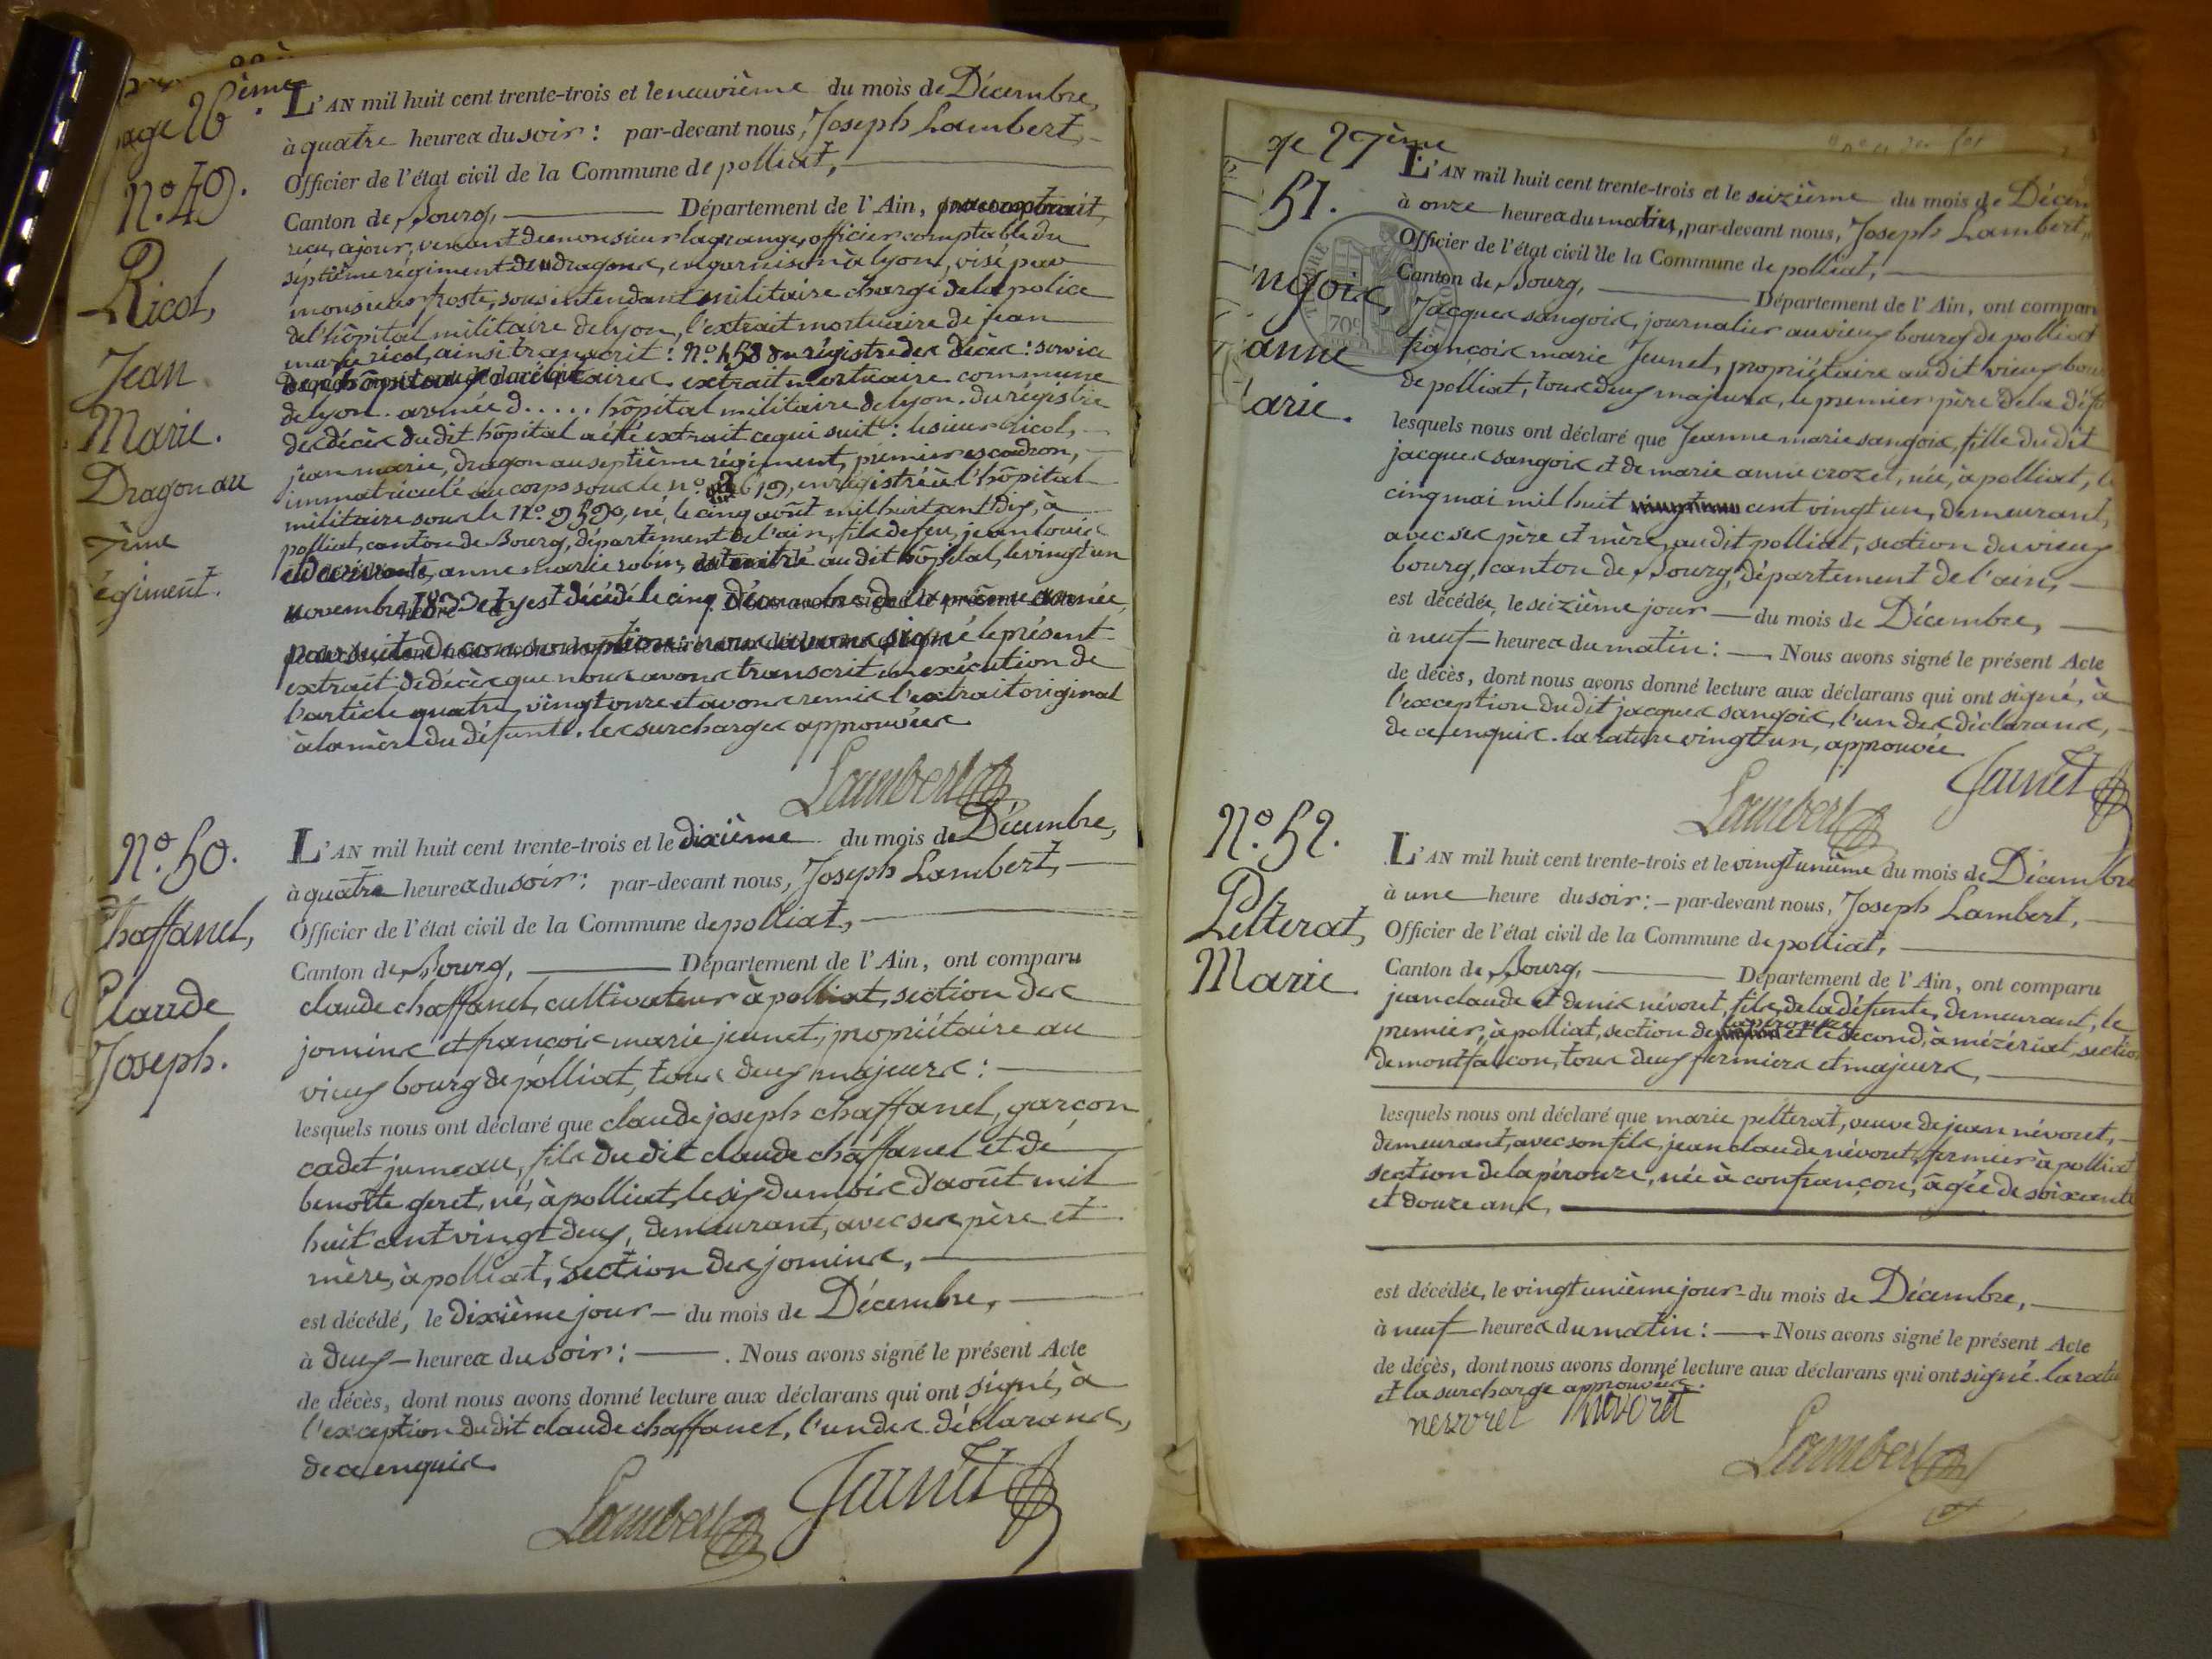 page 26ème.
N.º 49.
Ricol,
Jean
Marie.
Dragon au
7ème
régiment.
L'AN mil huit cent trente-trois et le neuvième du mois de Décembre,
à quatre heures du soir : par-devant nous, Joseph Lambert,
Officier de l'état civil de la Commune de polliat,
Canton de Bourg, Département de l'Ain,
reçu, a jour, venant de monsieur lagrange, officier comptable du
septième régiment de dragons, en garnison à lyon, visé par
monsieur froste, sous intendant militaire chargé de la police
de l'hôpital militaire de lyon, l'extrait mortuaire de jean
marie ricol, ainsi transcrit : N.º 458 du régistre des décès : service
extrait mortuaire commune
de lyon. armée d..... hôpital militaire de lyon. du régistre
des décès du dit hôpital a été extrait ce qui suit : le sieur ricol,
jean marie, dragon au septième régiment, premier escadron,
immatriculé au corps sous le n.º 19, enrégistré à l'hôpital
militaire sous le N.º né, le cinq août mil huit cent dix, à
polliat, canton de Bourg, département de l'ain, fils de feu, jean louis
et de anne marie robin, est entré au dit hôpital, le vingt un
novembre 1833 et y est décédé le cinq Décembre de la même année,
par suite de nous avons signé le présent
extrait de décès que nous avons transcrit en exécution de
l'article quatre vingt onze et avons remis l'extrait original
à la mère du défunt. les surcharges approuvées
Lambert
N.º 50.
Chaffanel,
Claude
Joseph.
L'AN mil huit cent trente-trois et le dixième du mois de Décembre,
à quatre heures du soir : par-devant nous, Joseph Lambert,
Officier de l'état civil de la Commune de polliat,
Canton de Bourg, Département de l'Ain, ont comparu
claude chaffanel, cultivateur à polliat, section des
jomins et françois marie jeunet, propriétaire au
vieux bourg de polliat, tous deux majeurs :
lesquels nous ont déclaré que claude joseph chaffanel, garçon
cadet jumeau, fils du dit claude chaffanel et de
benoîte geret, né, à polliat, le six du mois d'août mil
huit cent vingt deux, demeurant, avec ses père et
mère, à polliat, section des jomins,
est décédé, le dixième jour du mois de Décembre,
à deux heures du soir : . Nous avons signé le présent Acte
de décès, dont nous avons donné lecture aux déclarans qui ont signé, à
l'exception du dit claude chaffanel, l'un des déclarans,
de ce enquis.
Lambert Jeunet
ge 27ème
51.
ngois,
anne
arie.
L'AN mil huit cent trente-trois et le seizième du mois de Décem
à onze heures du matin, par-devant nous, Joseph Lambert,
Officier de l'état civil de la Commune de polliat,
Canton de Bourg, Département de l'Ain, ont compar
Jacques sangois, journalier au vieux bourg de polliat
françois marie Jeunet, propriétaire au dit vieux bour
de polliat, tous deux majeurs, le premier père de la défu
lesquels nous ont déclaré que Jeanne marie sangois, fille du dit
jacques sangois et de marie anne crozet, née, à polliat, le
cinq mai mil huit cent vingt un, demeurant,
avec ses père et mère, au dit polliat, section du vieux
bourg, canton de Bourg, département de l'ain,
est décédée, le seizième jour du mois de Décembre,
à neuf heures du matin : . Nous avons signé le présent Acte
de décès, dont nous avons donné lecture aux déclarans qui ont signé, à
l'exception du dit jacques sangois, l'un des déclarans,
de ce enquis. la rature vingt un, approuvée
Lambert Jeunet
N.º 52.
Pelterat,
Marie.
L'AN mil huit cent trente-trois et le vingt unième du mois de Décembre
à une heure du soir : par-devant nous, Joseph Lambert,
Officier de l'état civil de la Commune de polliat,
Canton de Bourg, Département de l'Ain, ont comparu
jean claude et denis névoret, fils de la défunte, demeurant, le
premier, à polliat, section de lapérouze et le second, à mézériat, section
de montfalcon, tous deux fermiers et majeurs,
lesquels nous ont déclaré que marie pelterat, veuve de jean névoret,
demeurant, avec son fils, jean claude névoret, fermier à polliat
section de lapérouze, née à confrançon, âgée de soixante
et douze ans,
est décédée, le vingt unième jour du mois de Décembre,
à neuf heures du matin : . Nous avons signé le présent Acte
de décès, dont nous avons donné lecture aux déclarans qui ont signé. la ratu
et la surcharge approuvées.
nevoret nevoret
Lambert